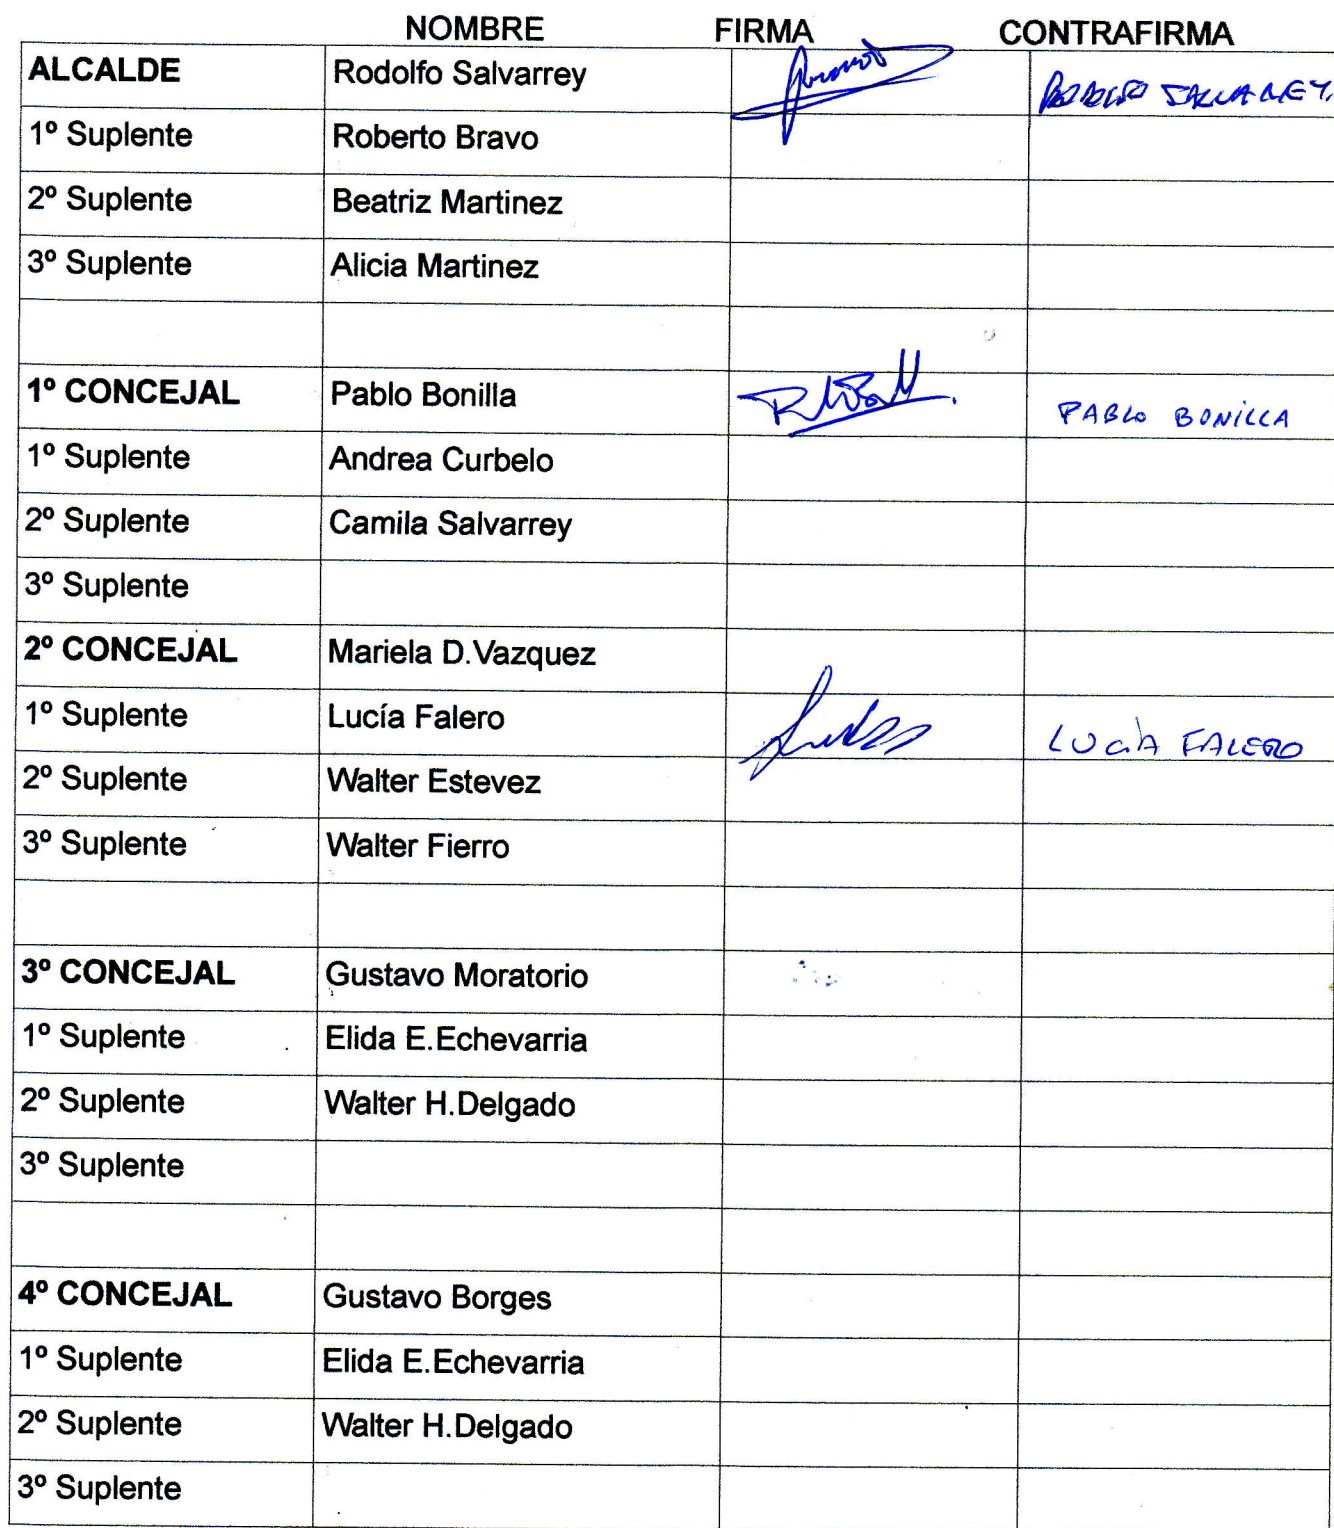 NOMBRE FIRMA CONTRAFIRMA
ALCALDE Rodolfo Salvarrey RODOLFO SALVARREY
1º Suplente Roberto Bravo
2º Suplente Beatriz Martinez
3º Suplente Alicia Martinez
1º CONCEJAL Pablo Bonilla PABLO BONILLA
1º Suplente Andrea Curbelo
2º Suplente Camila Salvarrey
3º Suplente
2º CONCEJAL Mariela D.Vazquez
1º Suplente Lucía Falero LUCÍA FALERO
2º Suplente Walter Estevez
3º Suplente Walter Fierro
3º CONCEJAL Gustavo Moratorio
1º Suplente Elida E.Echevarria
2º Suplente Walter H.Delgado
3º Suplente
4º CONCEJAL Gustavo Borges
1º Suplente Elida E.Echevarria
2º Suplente Walter H.Delgado
3º Suplente